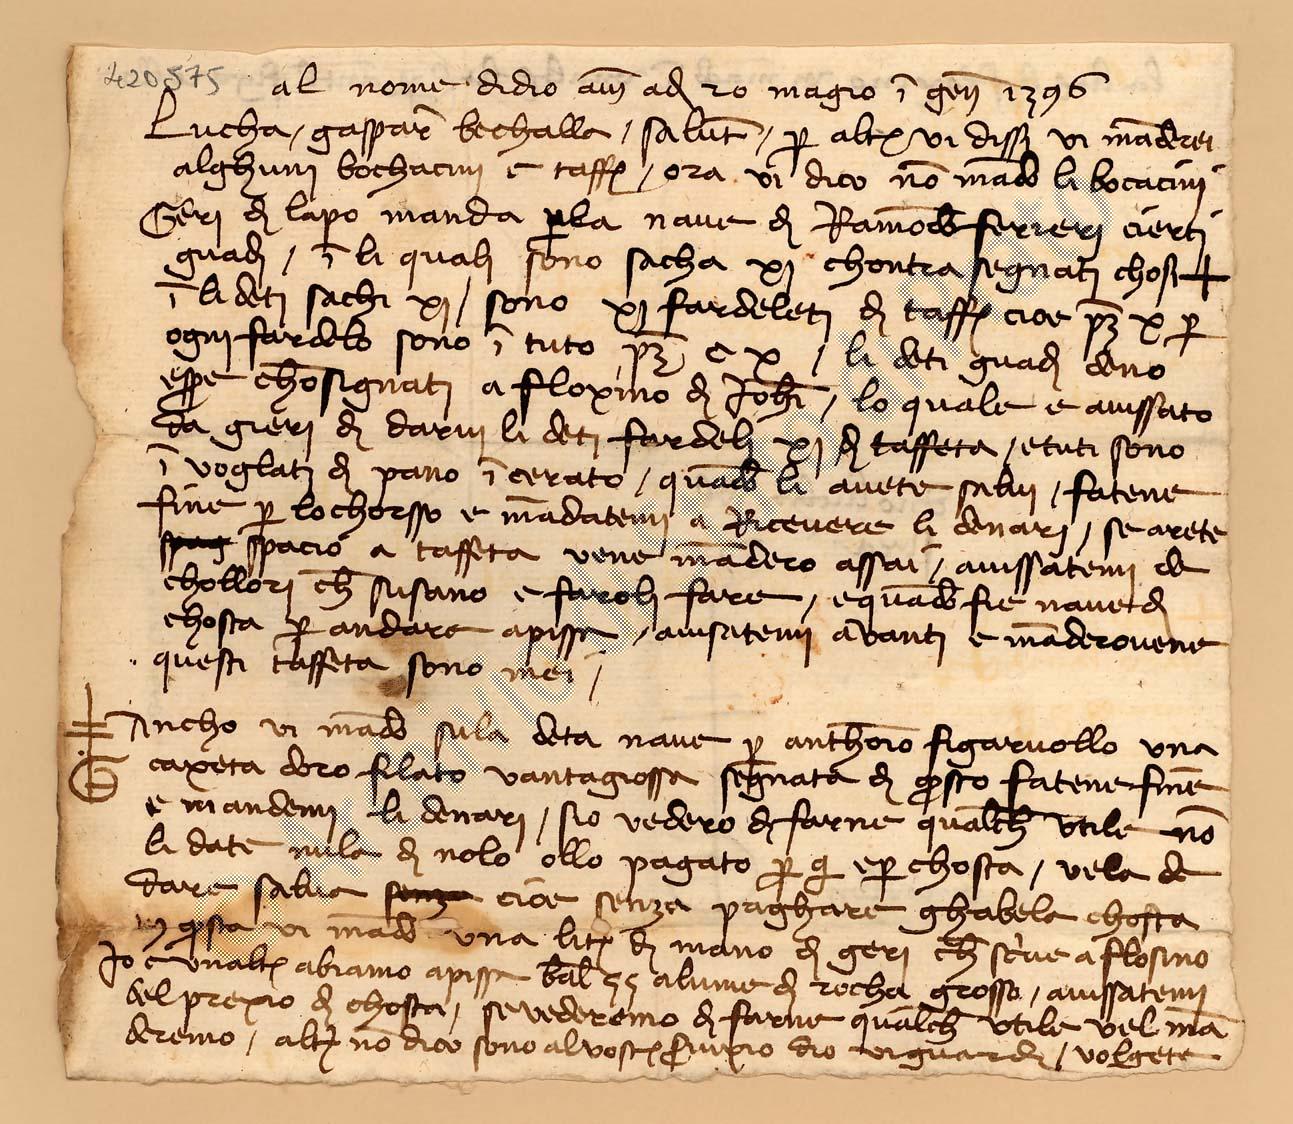 420575
al nome didio am adi 20 magio i gen 1396
Lucha, gaspar bechalla, salut, p altr vi dissi vi madrei
alghuni bochacini e taff, ora vi dico no mado li bocacini
Geri di lapo manda pla nave di Ramodo ferieri cierti
guadi, i li quali sono sacha xj chontra segnati chosi +
i li deti sachi xj, sono xj fardeleti di taff cioe pz x p
ogni fardelo sono i tuto pz c x, li deti guadi deno
espe chosignati a floxino di Johi, lo quale e avissato
da gieri di darvi li deti fardeli xj di taffeta, e tuti sono
i voglati di pano i cerato, quado li avete salvi, fatene
fine p lo chorsso e madatemi a Ricevere li denari, se arete
spacio a taffeta vene madero assai, avissatemi de
chollori ch susano e faroli fare, e quado fie nave di
chosta p andare apissa, avisatemi avanti e maderovene
questi taffeta sono mei,
Ancho vi mado sula deta nave p anthoio figaruollo una
caxeta doro filato vantagiossa segnata di qsto fatene fine
e mandemi li denari, sio vedero di farne qualch utile no
li date nula di nolo ollo pagato p q e p chosta, vela de
dare salva cioe senza paghare ghabela chosta
qsta vi mado una litr di mano di geri ch scrive a flosino
Io e unaltr abiamo apissa bal 55 alume di rocha grosso, avissatemi
del prexio di chosta, se vederemo di farne qualch utile vel ma
deremo, altr no dico sono al vostr servixio dio vi guardi, volgete